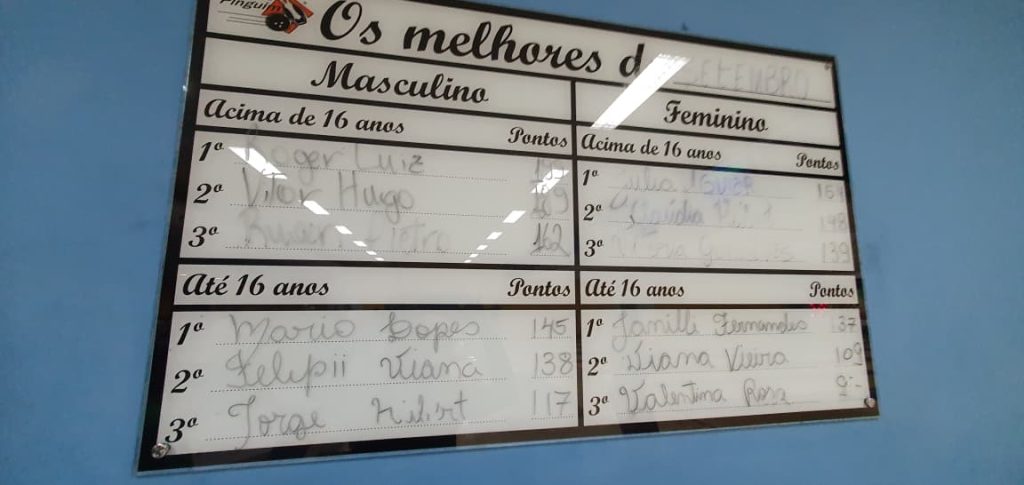 Pinguim
Os melhores d SETEMBRO
Masculino
Acima de 16 anos Pontos
1º Roger Luiz
2º Vitor Hugo 169
3º 162
Até 16 anos Pontos
1º Mario Lopes 145
2º Felipii Viana 138
3º Jorge 117
Feminino
Acima de 16 anos Pontos
1º Julia
2º Claudia 148
3º 139
Até 16 anos Pontos
1º Janilli Fernandes 137
2º Viana Vieira 109
3º Valentina Rosa